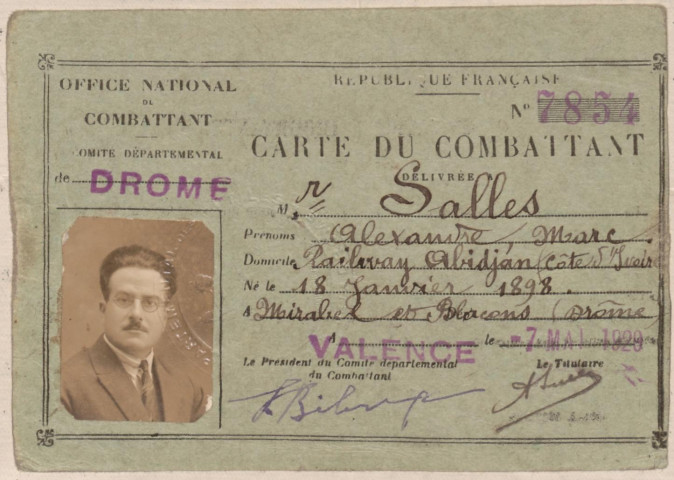 OFFICE NATIONAL
DU
COMBATTANT
COMITÉ DÉPARTEMENTAL
de DROME
RÉPUBLIQUE FRANÇAISE
Nº 7854
CARTE DU COMBATTANT
DÉLIVRÉE
M r Salles
Prénoms Alexandre Marc
Domicile Railway Abidjan (Côte d'Ivoire
Né le 18 Janvier 1898
A Mirabel et Blacons (Drôme)
A VALENCE le -7 MAI 1929
Le Président du Comité départemental
du Combattant
Le Titulaire